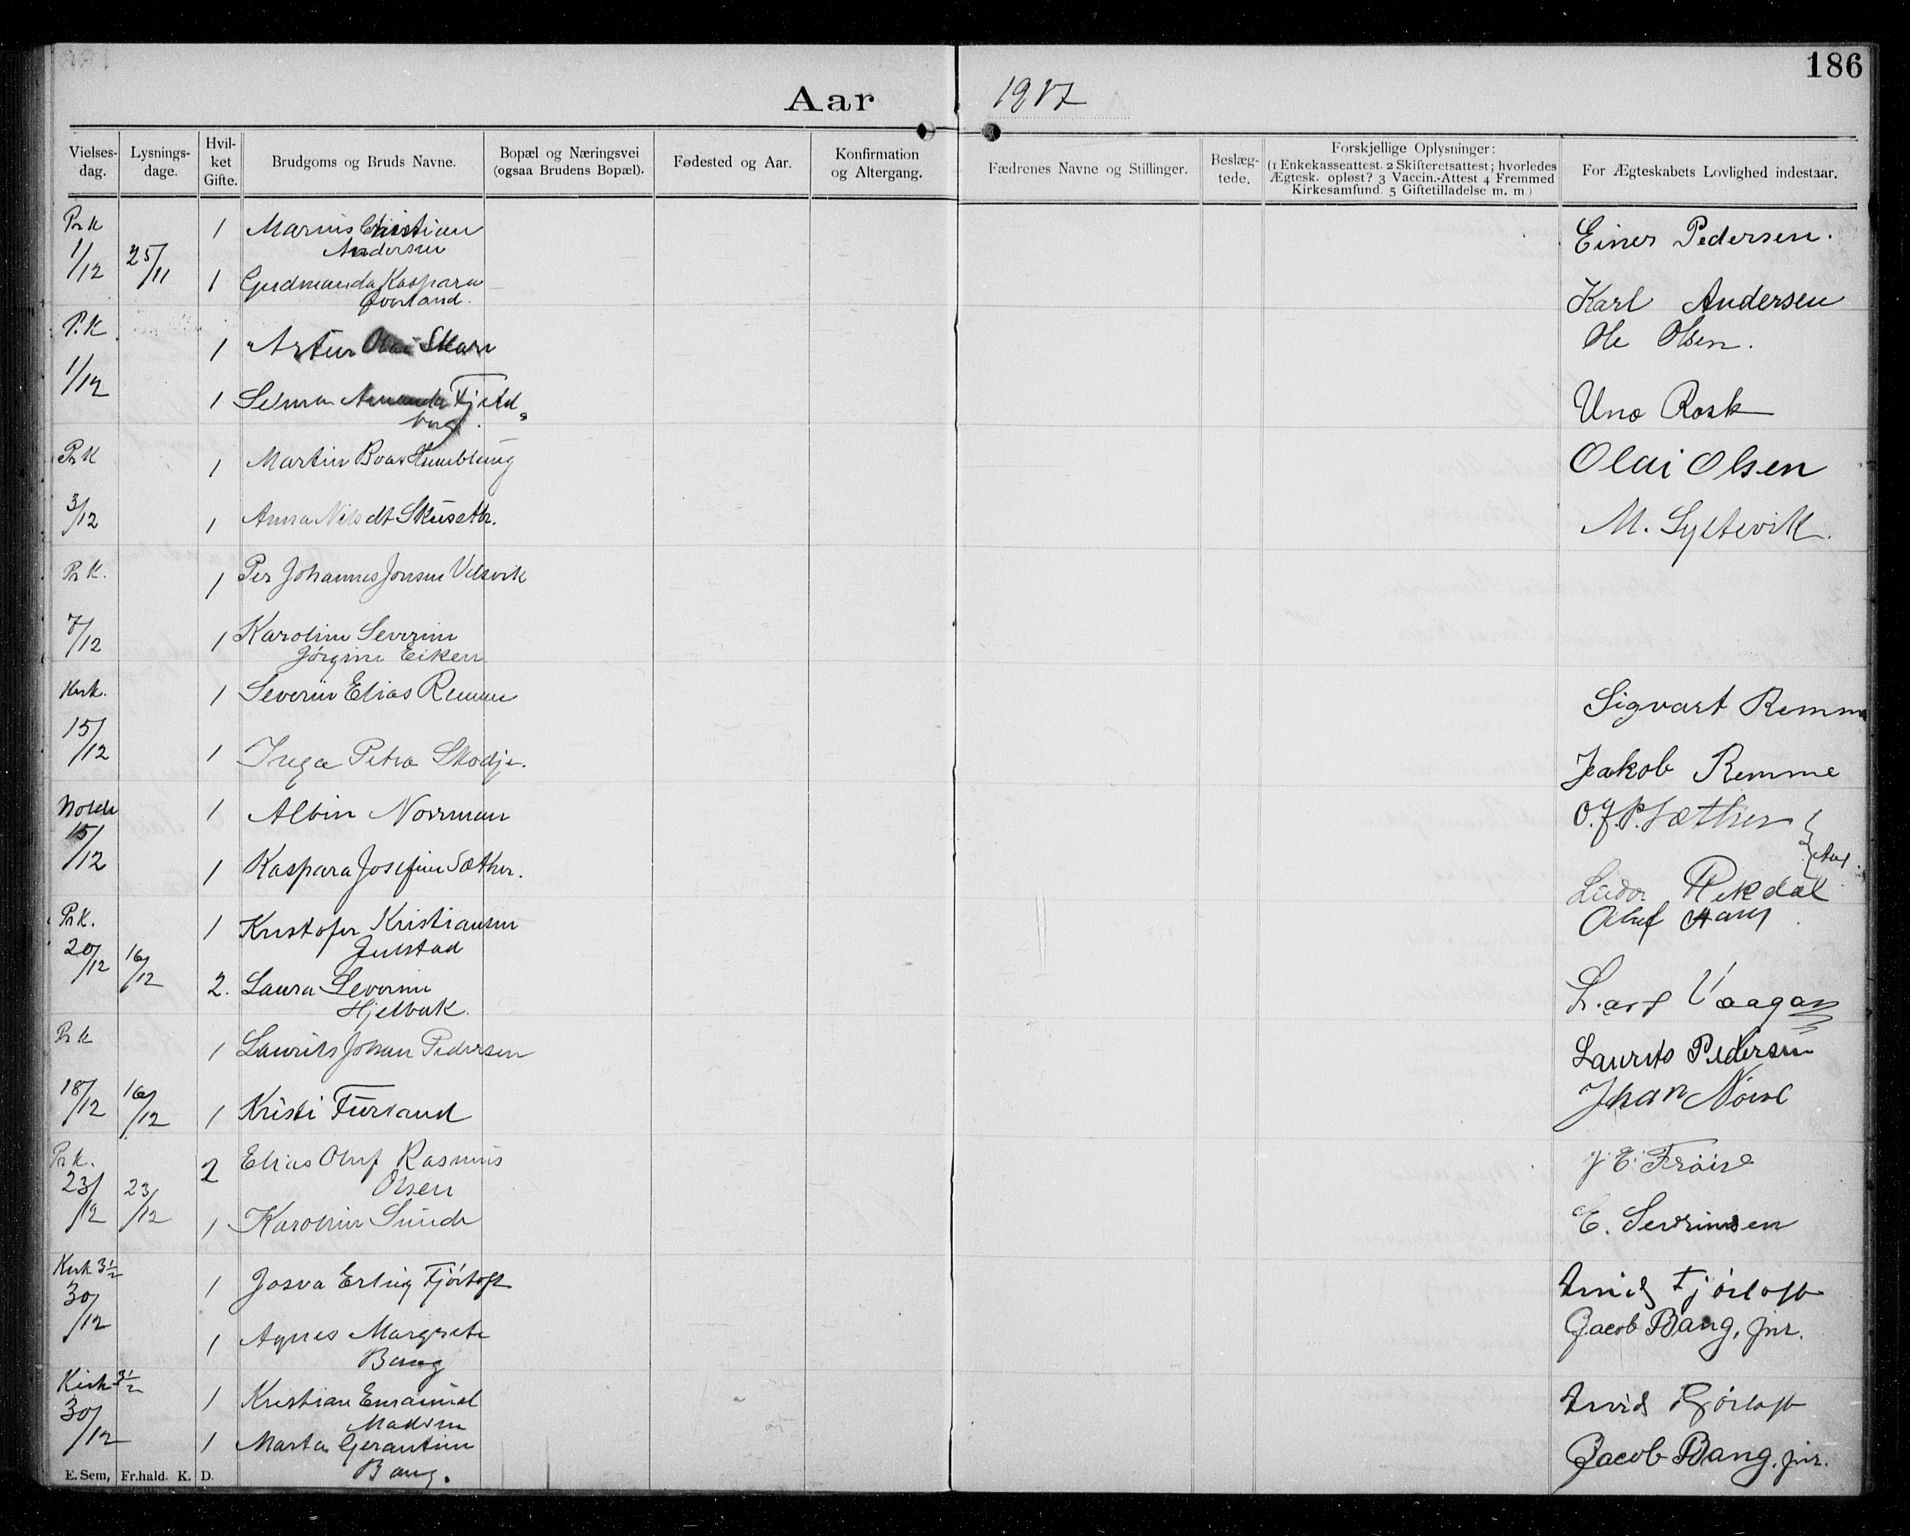 186
Aar 1917
Vielses-dag. Lysnings-dage. Hvil-ket Gifte. Brudgoms og Bruds Navne. Bopæl og Næringsvei (ogsaa Brudens Bopæl). Fødested og Aar. Konfirmation og Altergang. Fædrenes Navne og Stillinger. Beslæg-tede. Forskjellige Oplysninger: (1 Enkekasseattest. 2 Skifteretsattest; hvorledes Ægtesk. opløst? 3 Vaccin.-Attest 4 Fremmed Kirkesamfund. 5 Giftetilladelse m. m.) For Ægteskabets Lovlighed indestaar.
Pr K 1 Marius Christian Einer Pedersen.
1/12 25/11 Andersen
1 Gudmunda Kaspara Karl Andersen
Overland.
P. K 1 Artur Olai Skare Ole Olsen.
1/12 1 Selma Amanda Fjeld- Uno Rosk
borg.
Pr K 1 Martin Boas Humblung Olai Olsen
3/12 1 Anna Nilsdt Skuseth. M. Syltevik.
Pr K. 1 Per Johannes Jonsen Velsvik
7/12 1 Karoline Severine
Jørgine Eiken
Kirk. 1 Severin Elias Remme Sigvart Remme
15/12 1 Inga Petra Skodje. Jakob Remme
Molde 1 Albin Norrman O. J. P. Sæther
15/12 1 Kaspara Josefine Sæther. Rekdal
Pr K. 1 Kristofer Kristiansen Oluf
20/12 16/12 Julstad
2. Laura Severine Lars Vaagan
Hjelbak.
Pr K 1 Laurits Johan Pedersen Laurits Pedersen
18/12 16/12 1 Kristi Furland Johan
Pr K. 2 Elias Oluf Rasmus J. E. Frøise
23/12 23/12 Olsen
1 Karoline Sunde E. Sevrinsen
Kirk 3½ 1 Josva Erling Fjørtoft Arvid Fjørtoft
30/12 1 Agnes Margrete Jacob Bang, jnr.
Bang
Kirk 3½ 1 Kristian Emanuel Arvid Fjørtoft
30/12 Madsen
1 Marta Gerantine Jacob Bang, jnr.
Bang.
E. Sem, Fr.hald. K. D.